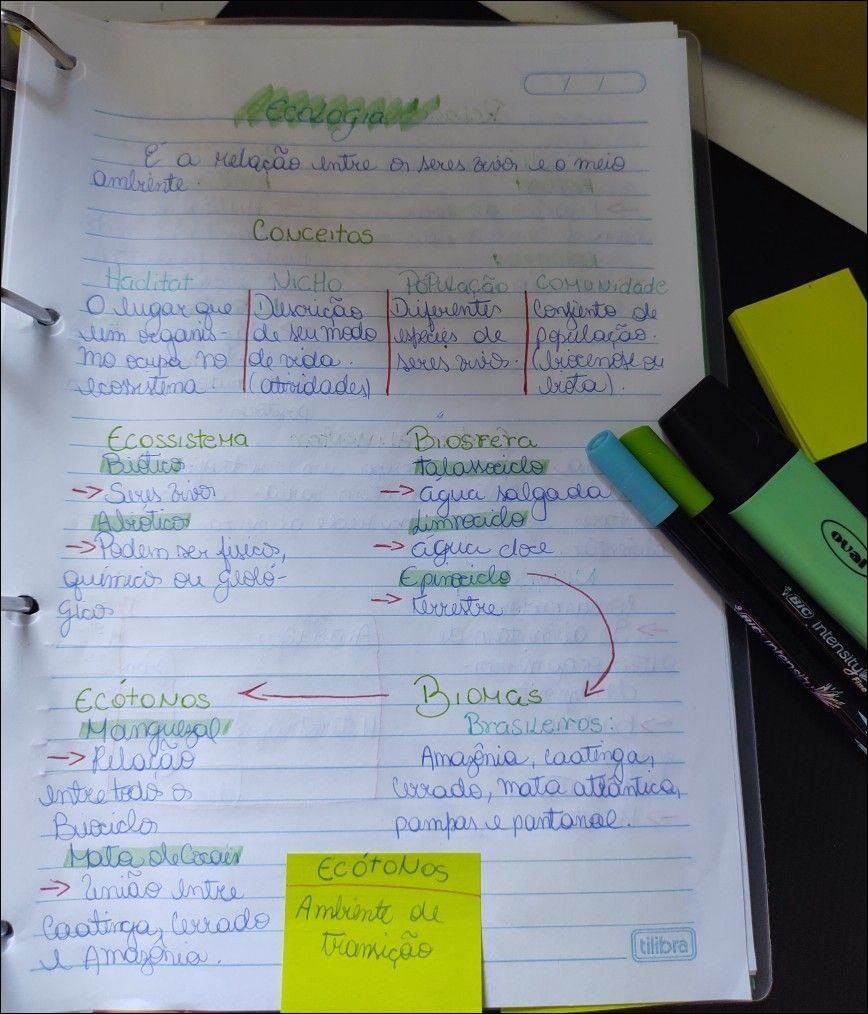 Ecologia
É a relação entre os seres vivos e o meio
ambiente.
Conceitos
Haditat
O lugar que
um organis-
mo ocupa no
ecossistema.
Nicho
Descrição
de seu modo
de vida.
(atividades)
População
Diferentes
espécies de
seres vivos.
Comunidade
Conjunto de
população.
(biocenose ou
biota).
Ecossistema
Biótico
→ Seres vivos
Abiótico
→ Podem ser físicos,
químicos ou geoló-
gicos
Biosfera
talassociclo
→ água salgada
Limnociclo
→ água doce
Epinociclo
→ terrestre
Biomas
Brasileiros:
Amazônia, caatinga,
cerrado, mata atlântica,
pampas e pantanal.
Ecótonos
Manguezal
→ Relação
entre todo os
Biociclos
Mata de Cocais
→ União entre
Caatinga, Cerrado
e Amazônia.
Ecótonos
Ambiente de
transição
tilibra
BIC intensity